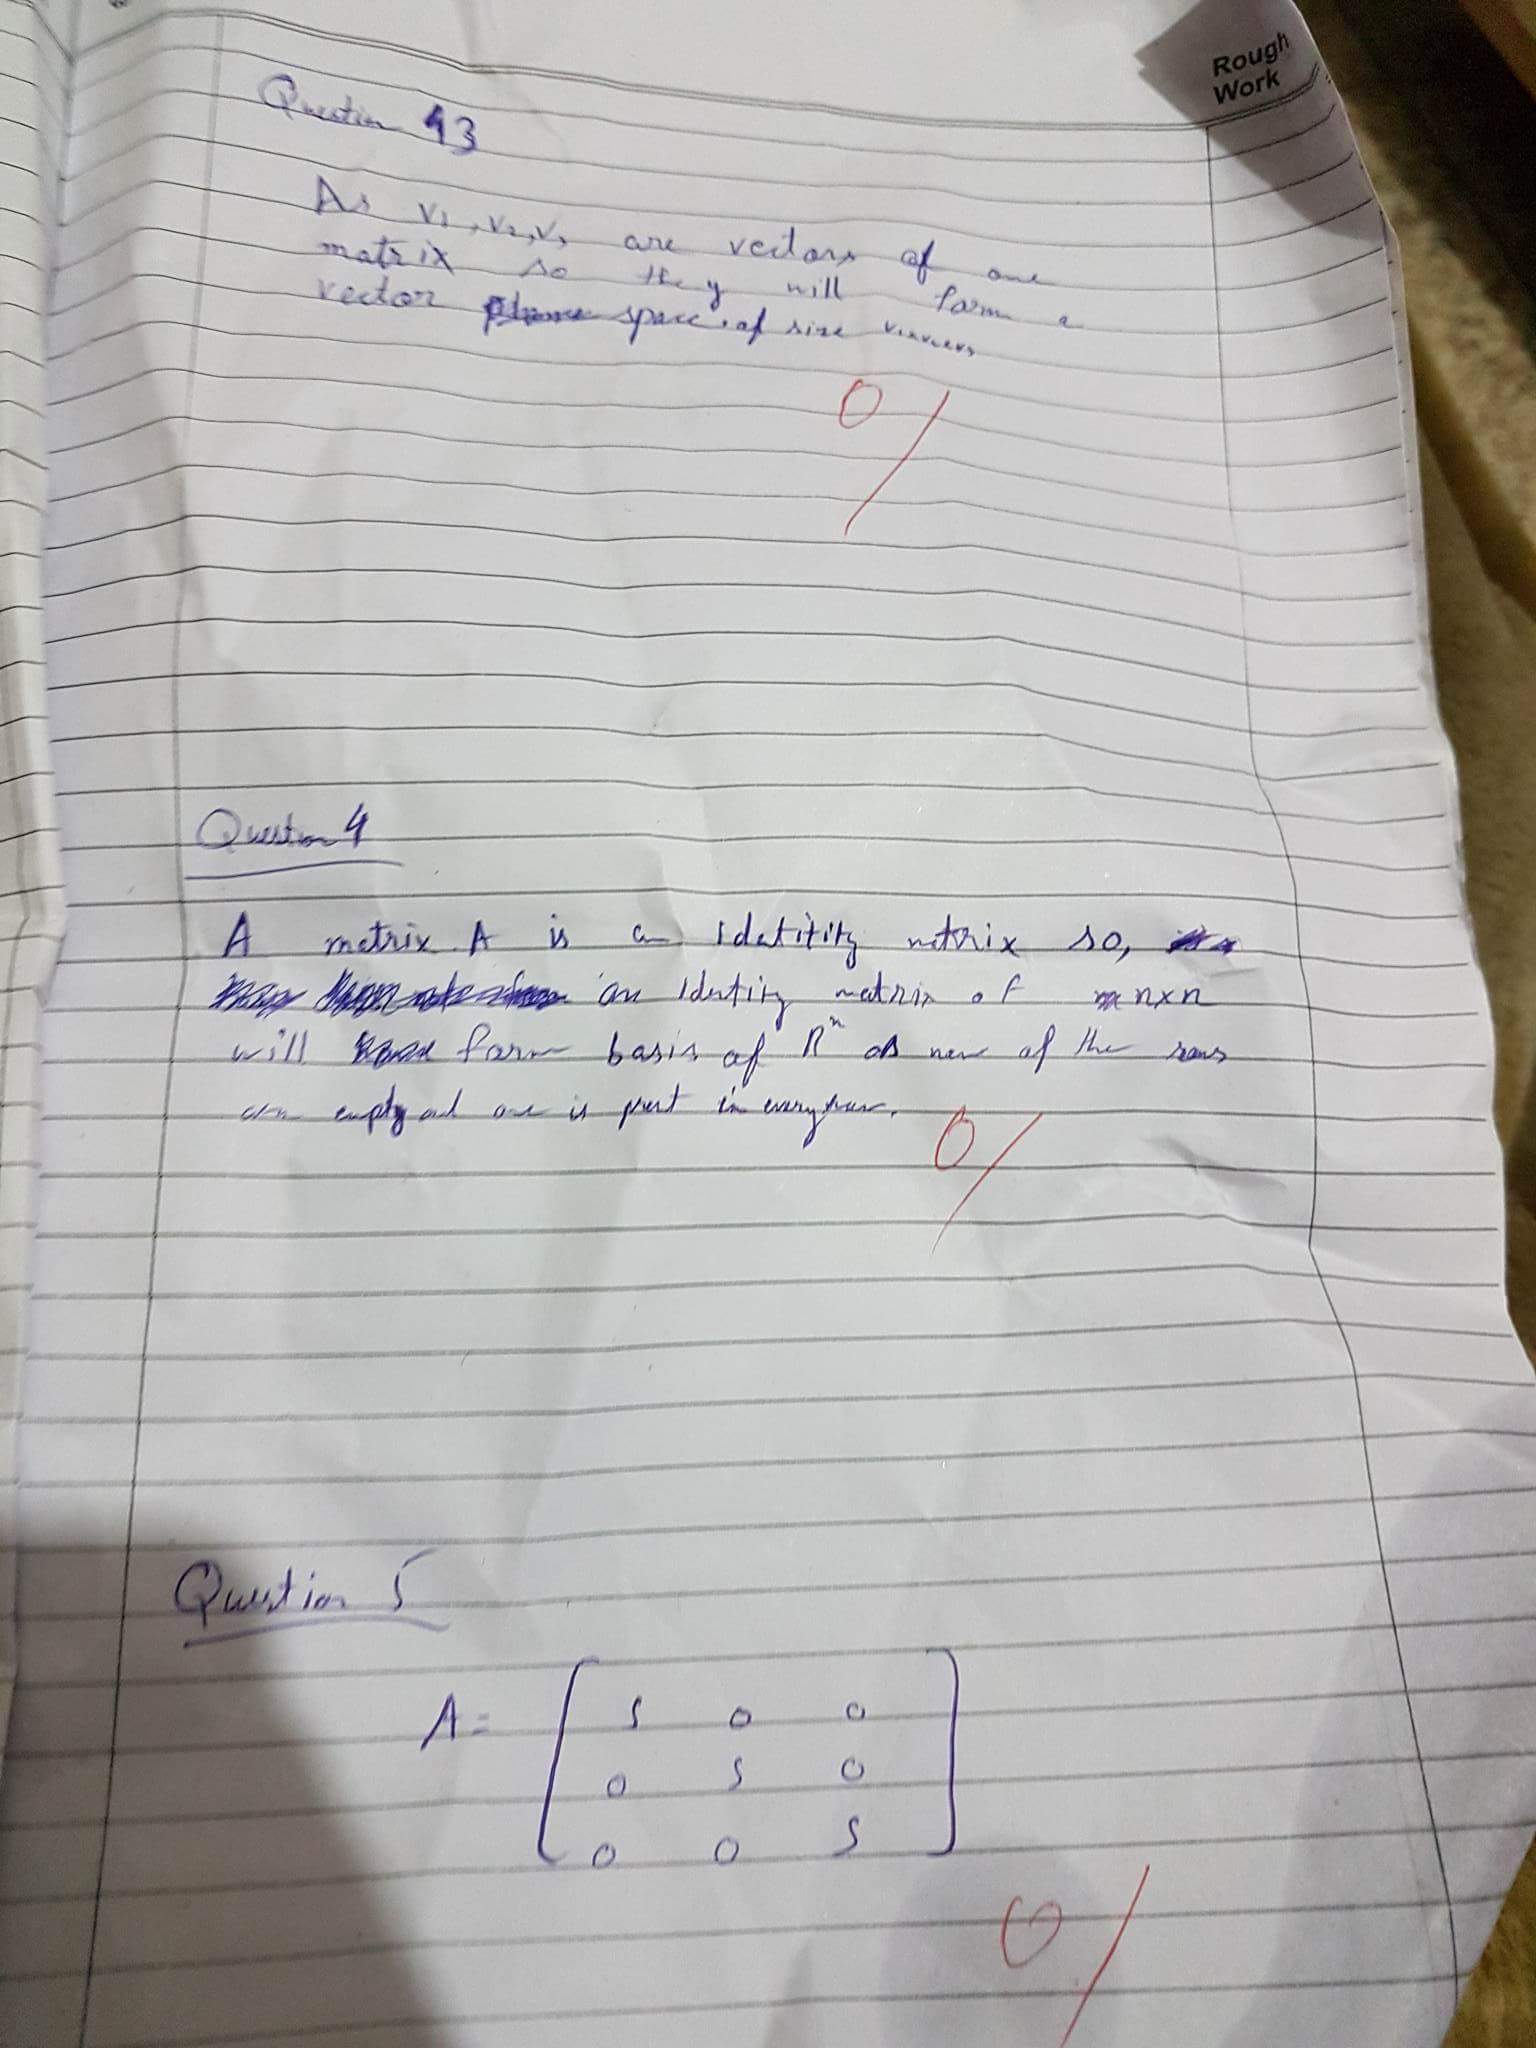 Rough
Work
Question 3
As v1, v2, v3 are vectors of one
matrix so they will form a
vector space of size
Question 4
A matrix A is a Idetitity matrix so,
an Identity matrix of nxn
will form basis of R^n as non of the rows
are empty and one is prest in every row.
0/
0/
Question 5
A = [ 5 0 0
0 5 0
0 0 5 ]
0/